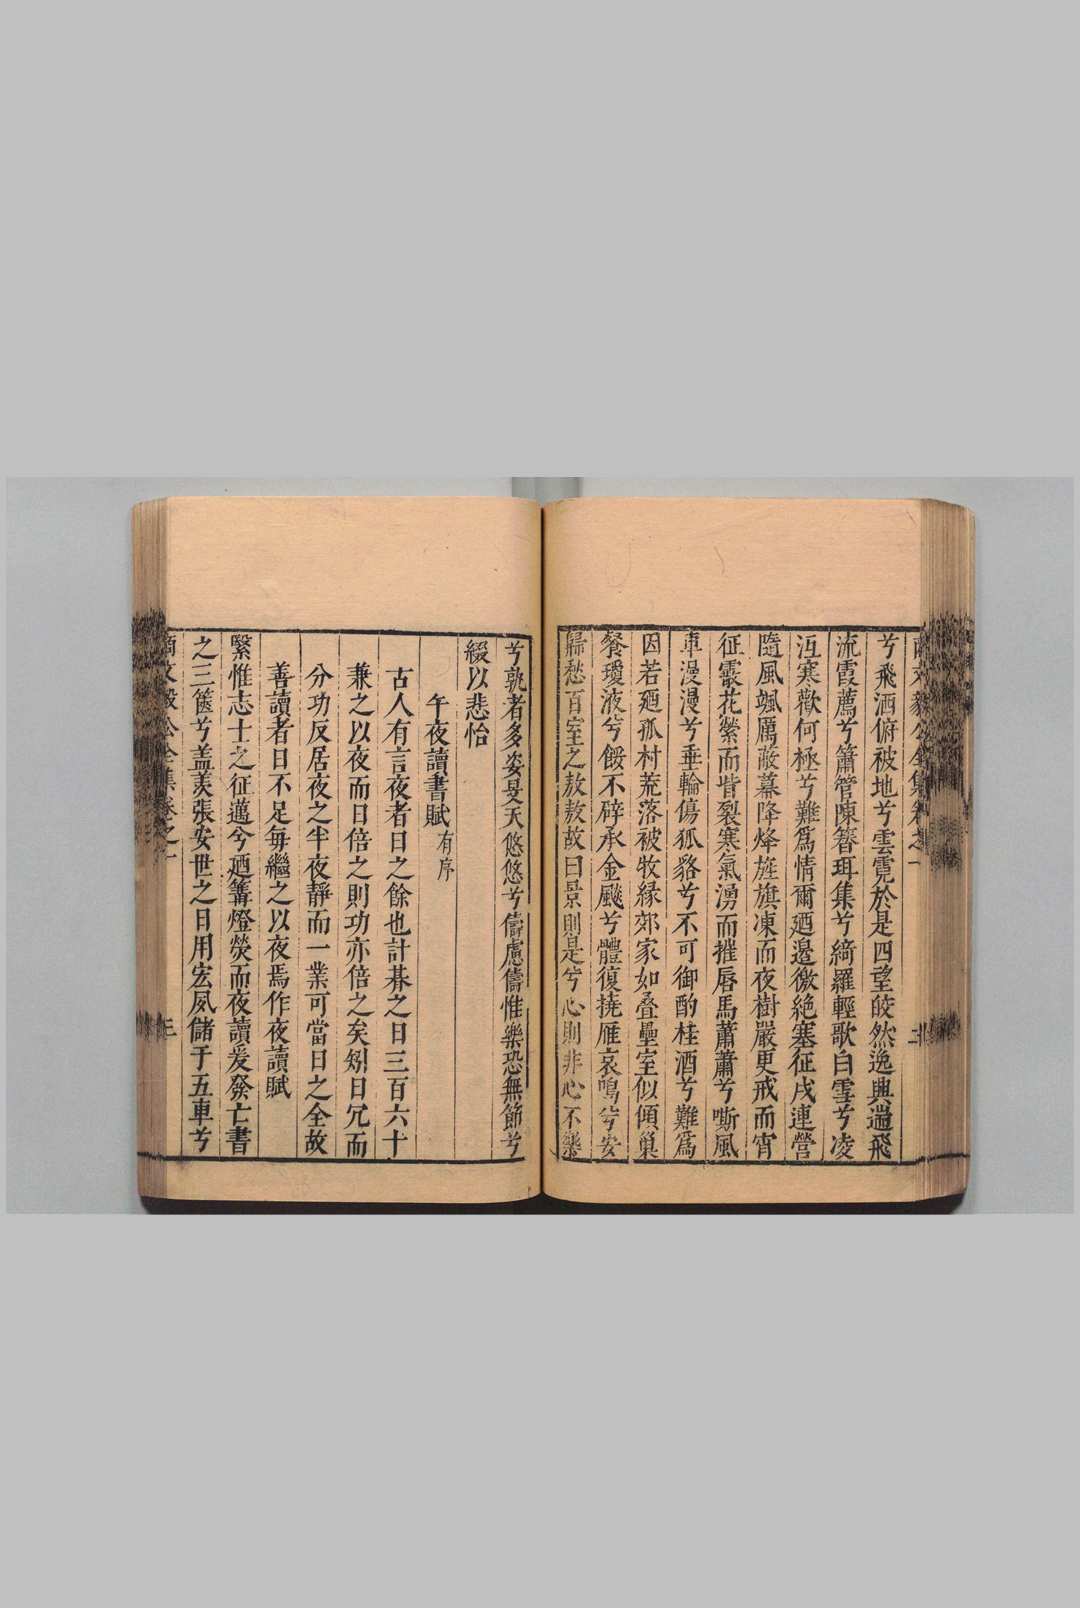 商文毅公全集卷之一
二
兮飛洒俯被地兮雲霓於是四望皎然逸興遄飛
流霞薦兮簫管陳簪珥集兮綺羅輕歌白雪兮凌
沍寒歡何極兮難為情爾廼邉徼絶塞征戍連營
隨風颯厲蔽幕降烽旌旗凍而夜樹嚴更戒而宵
征霰花縈而眥裂寒氣湧而摧唇馬蕭蕭兮嘶風
車漫漫兮垂輪傷狐貉兮不可御酌桂酒兮難爲
因若廼孤村荒落被牧縁郊家如叠壘室似傾巢
餐瓊液兮餒不辟承金颷兮體復撓雁哀鳴兮安
歸愁百室之敖敖故曰景則是兮心則非心不樂
兮孰者多姿旻天悠悠兮儔慮儔惟樂恐無節兮
綴以悲怡
午夜讀書賦有序
古人有言夜者日之餘也計朞之日三百六十
兼之以夜而日倍之則功亦倍之矣矧日冗而
分功反居夜之半夜靜而一業可當日之全故
善讀者日不足每繼之以夜焉作夜讀賦
繄惟志士之征邁兮廼篝燈熒而夜讀爰發亡書
之三篋兮盖羡張安世之日用宏夙儲于五車兮
商文毅公全集卷之一
三